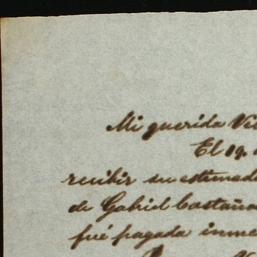 Mi querida
El 19.
recibir su estimada
de Gabiel Castaño
fué pagada inme